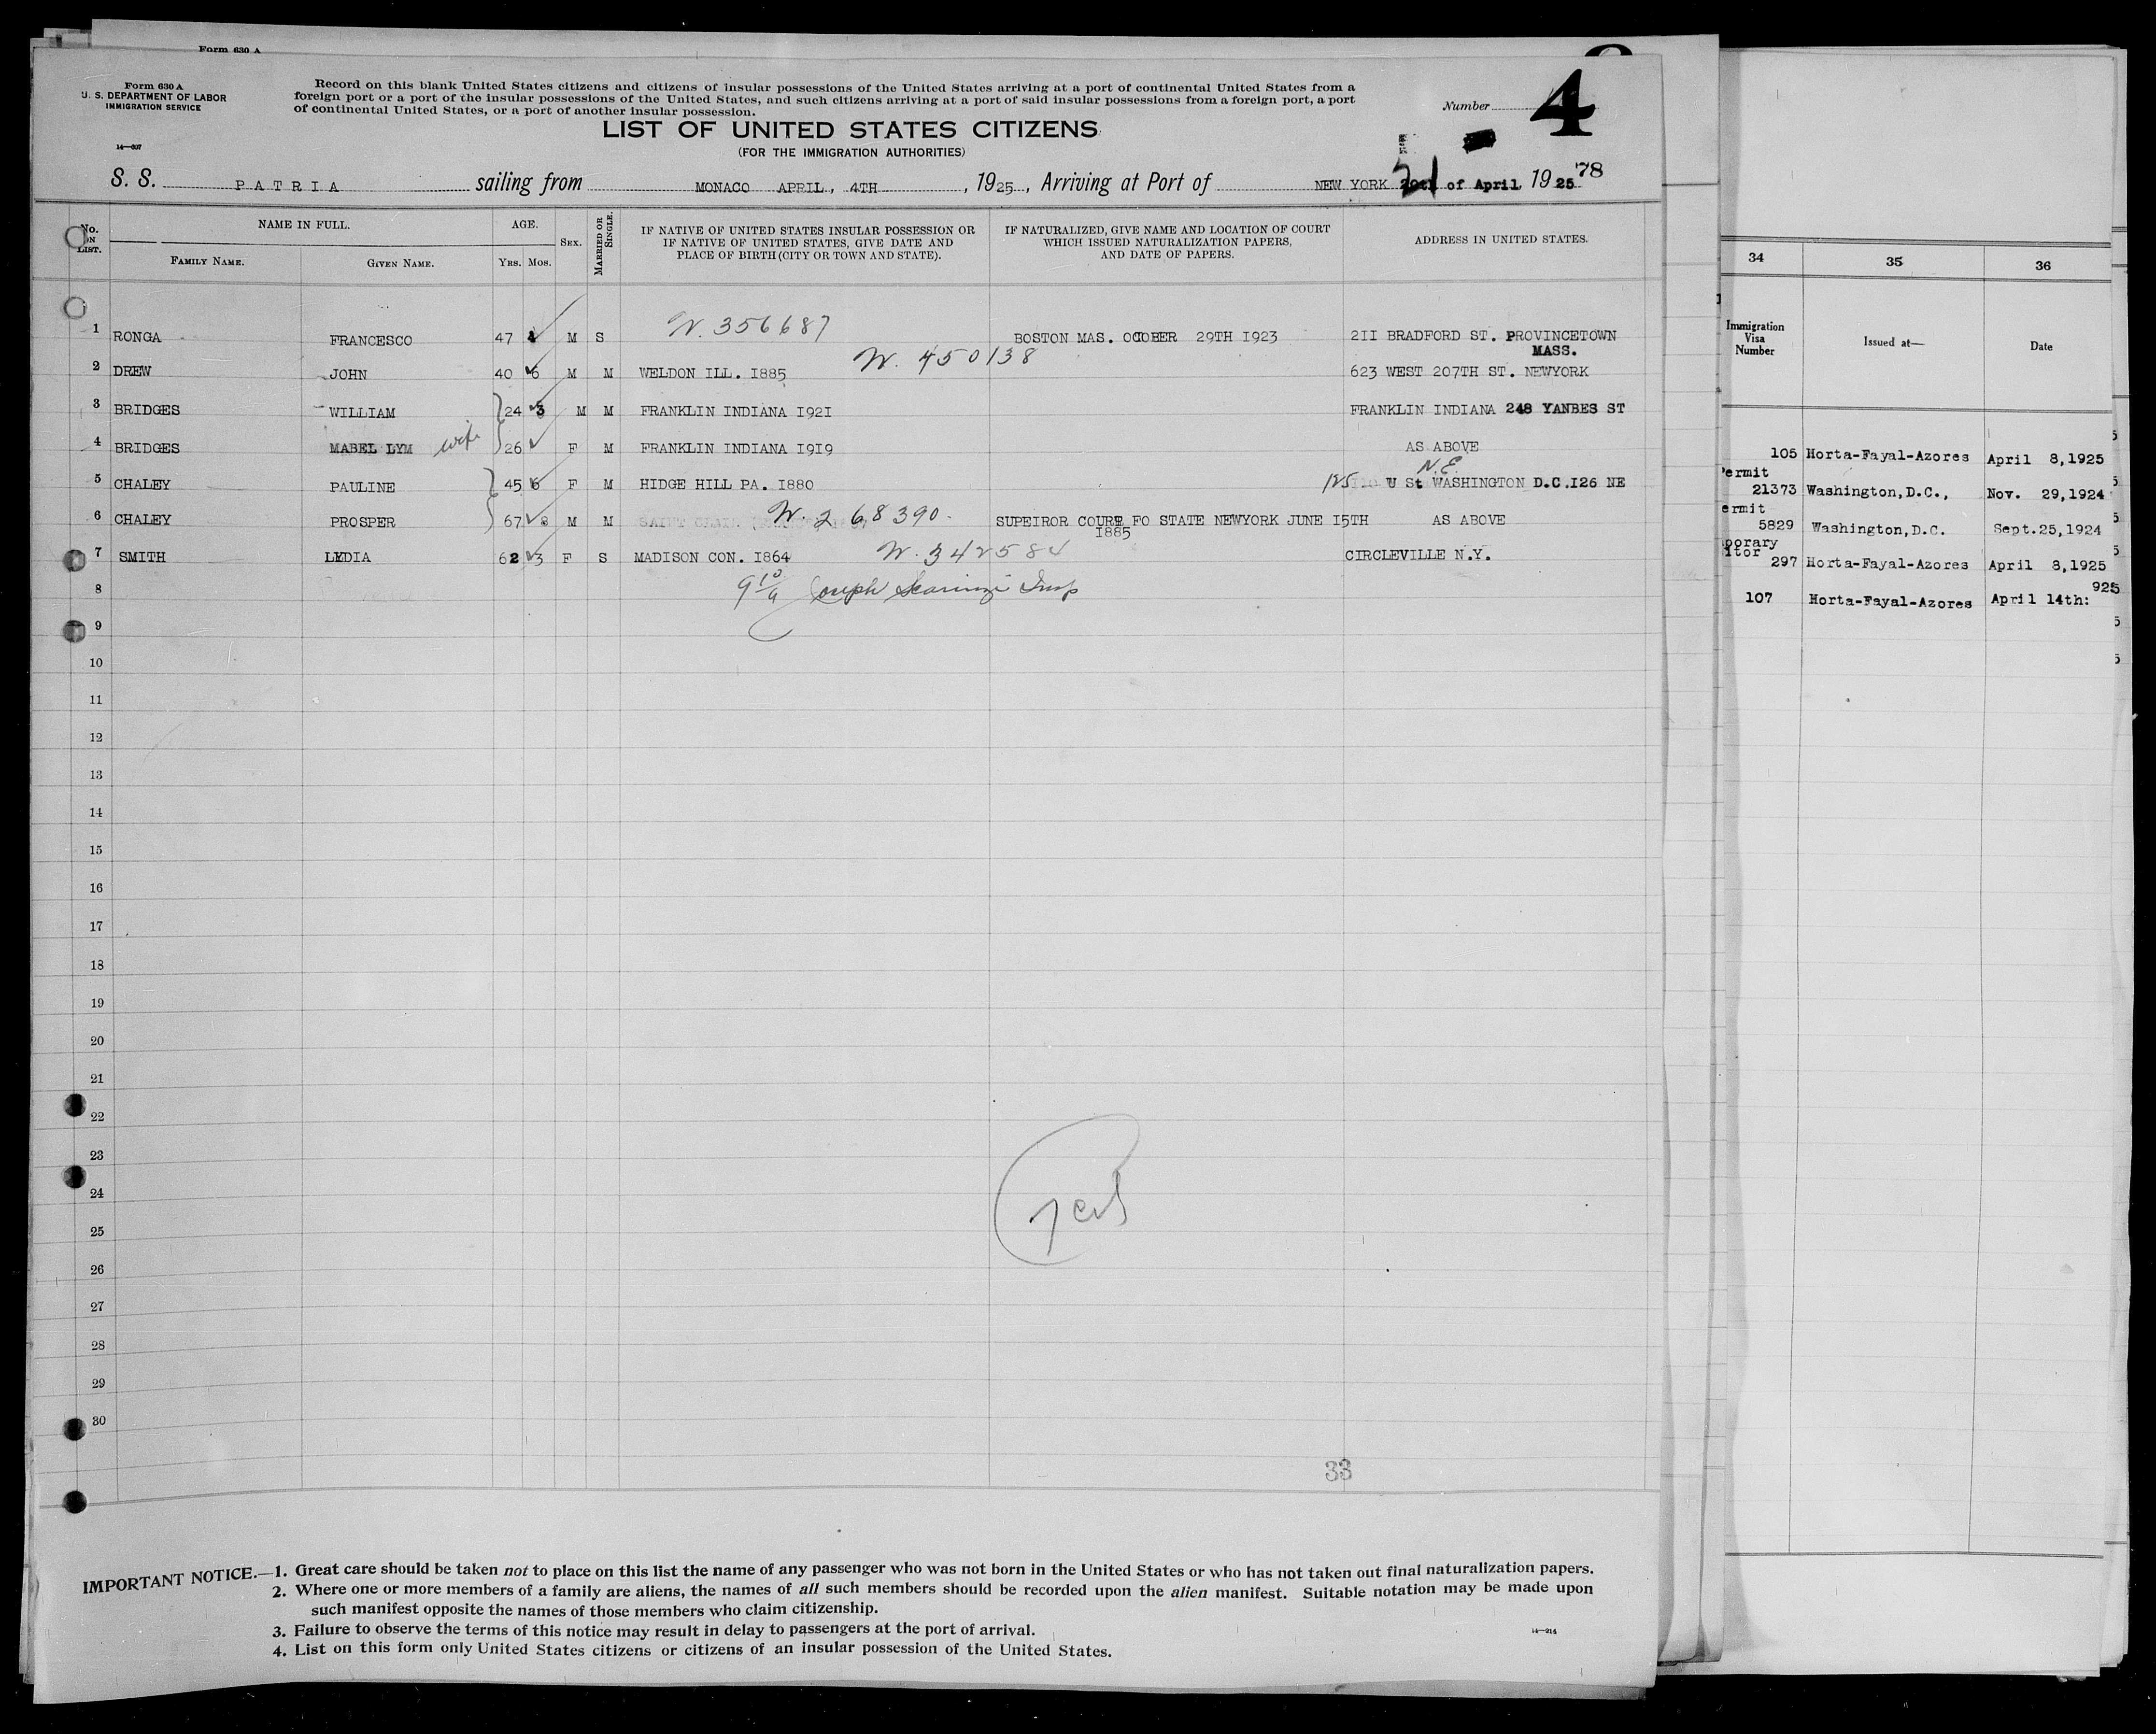 Form 630 A
Form 630 A
U. S. DEPARTMENT OF LABOR
IMMIGRATION SERVICE
14—607
Record on this blank United States citizens and citizens of insular possessions of the United States arriving at a port of continental United States from a
foreign port or a port of the insular possessions of the United States, and such citizens arriving at a port of said insular possessions from a foreign port, a port
of continental United States, or a port of another insular possession.
Number 4
LIST OF UNITED STATES CITIZENS
(FOR THE IMMIGRATION AUTHORITIES)
78
S. S. PATRIA sailing from MONACO APRIL, 4TH, 1925, Arriving at Port of NEW YORK 21 of April, 1925
No. ON LIST.
NAME IN FULL.
FAMILY NAME.
GIVEN NAME.
AGE.
YRS. MOS.
SEX.
MARRIED OR SINGLE.
IF NATIVE OF UNITED STATES INSULAR POSSESSION OR
IF NATIVE OF UNITED STATES, GIVE DATE AND
PLACE OF BIRTH (CITY OR TOWN AND STATE).
IF NATURALIZED, GIVE NAME AND LOCATION OF COURT
WHICH ISSUED NATURALIZATION PAPERS,
AND DATE OF PAPERS.
ADDRESS IN UNITED STATES.
N. 356687
1 RONGA FRANCESCO 47 M S BOSTON MAS. OCTOBER 29TH I923 2II BRADFORD ST. PROVINCETOWN
MASS.
N. 450138
2 DREW JOHN 40 6 M M WELDON ILL. I885 623 WEST 207TH ST. NEWYORK
3 BRIDGES WILLIAM 24 3 M M FRANKLIN INDIANA I92I FRANKLIN INDIANA 248 YANBES ST
4 BRIDGES MABEL LYM wife 26 F M FRANKLIN INDIANA I9I9 AS ABOVE
N.E.
5 CHALEY PAULINE 45 6 F M HIDGE HILL PA. I880 125 U St WASHINGTON D.C.I26 NE
6 CHALEY PROSPER 67 M M N. 268390. SUPEIROR COURT FO STATE NEWYORK JUNE I5TH AS ABOVE
I885
7 SMITH LYDIA 62 3 F S MADISON CON. I864 N. 342584 CIRCLEVILLE N.Y.
8 Joseph Insp
9
10
11
12
13
14
15
16
17
18
19
20
21
22
23
24
25
26
27
28
29
30
33
IMPORTANT NOTICE.—1. Great care should be taken not to place on this list the name of any passenger who was not born in the United States or who has not taken out final naturalization papers.
2. Where one or more members of a family are aliens, the names of all such members should be recorded upon the alien manifest. Suitable notation may be made upon
such manifest opposite the names of those members who claim citizenship.
3. Failure to observe the terms of this notice may result in delay to passengers at the port of arrival.
4. List on this form only United States citizens or citizens of an insular possession of the United States.
14—214
34 35 36
Immigration
Visa
Number
Issued at—
Date
105 Horta-Fayal-Azores April 8,1925
ermit
21373 Washington,D.C., Nov. 29,1924
ermit
5829 Washington,D.C. Sept.25,1924
porary
itor
297 Horta-Fayal-Azores April 8,1925
925
107 Horta-Fayal-Azores April 14th: